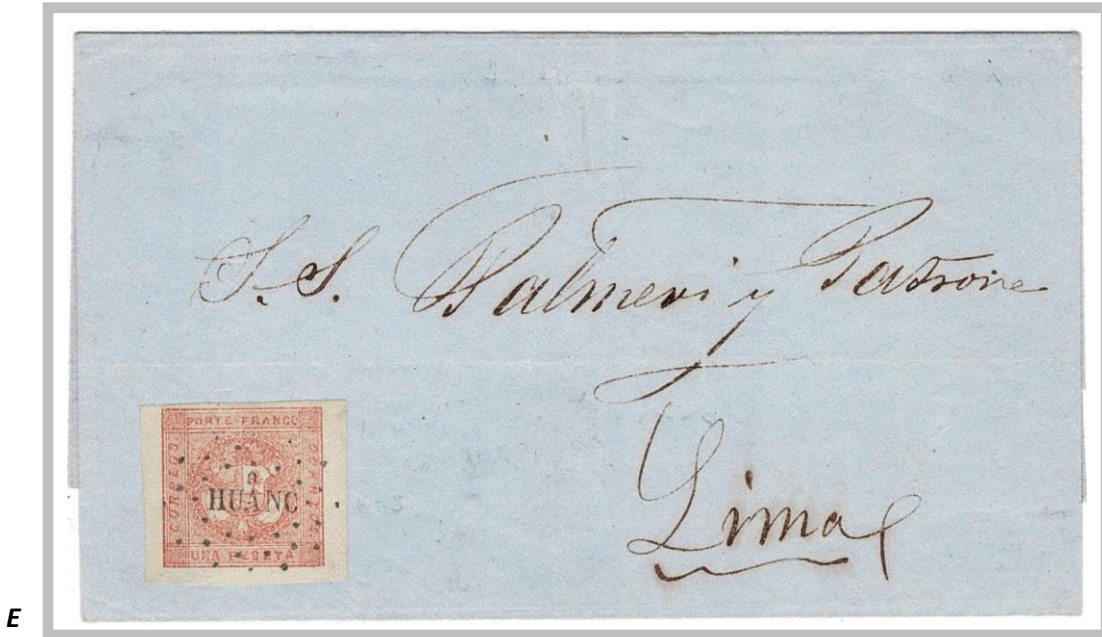 S. S. Palmeri y Patrone
Lima
PORTE FRANCO
CORREOS
HUANC
UNA PESETA
E